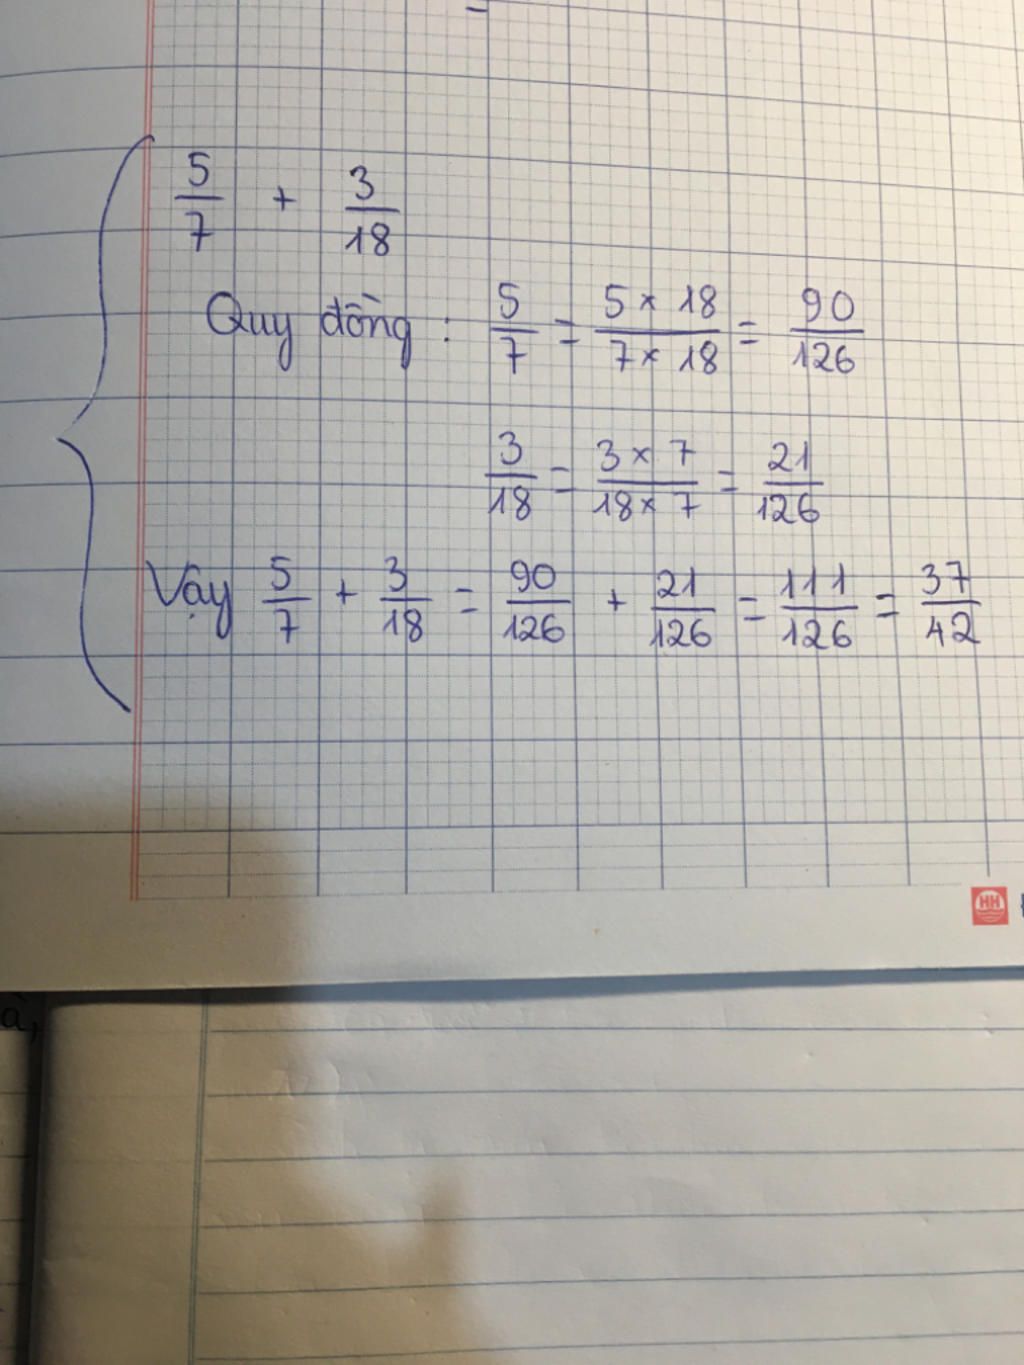 5/7 + 3/18
Quy đồng : 5/7 = 5 x 18 / 7 x 18 = 90/126
3/18 = 3 x 7 / 18 x 7 = 21/126
Vậy 5/7 + 3/18 = 90/126 + 21/126 = 111/126 = 37/42
HH